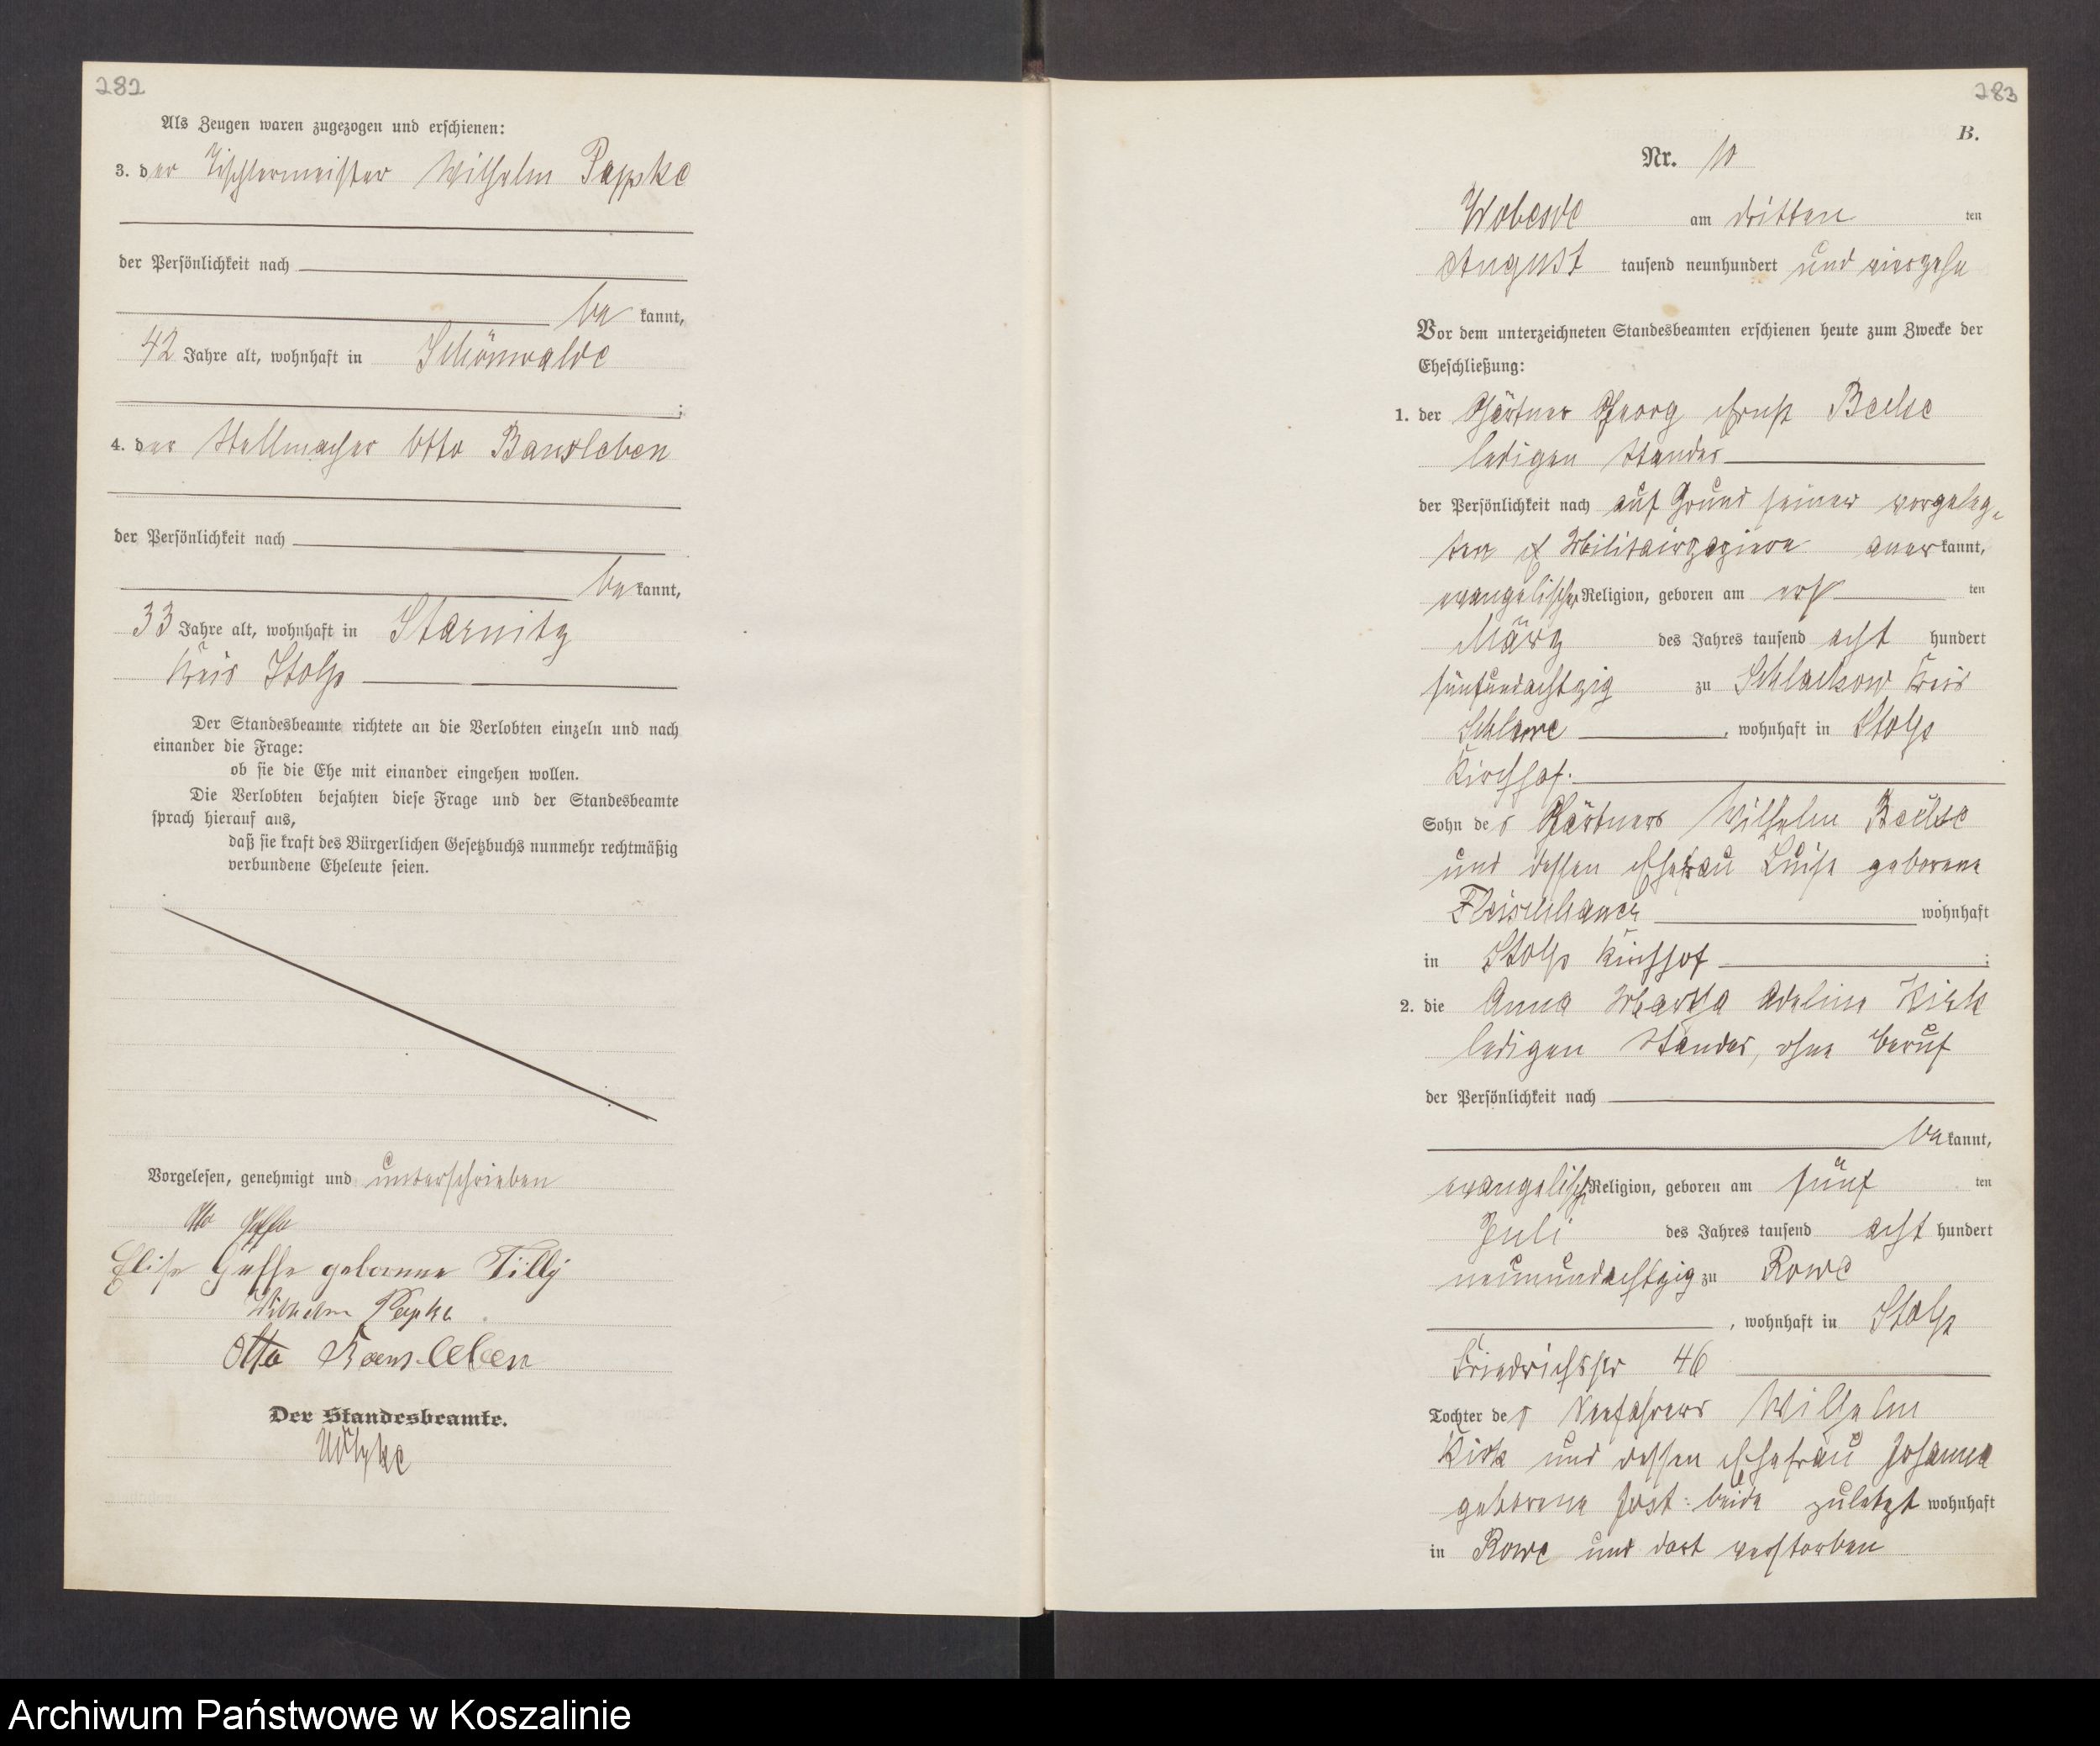 282
Als Zeugen waren zugezogen und erschienen:
3. der Tischlermeister Wilhelm Papke
der Persönlichkeit nach
bekannt,
42 Jahre alt, wohnhaft in Schönwalde
;
4. der Stellmacher Otto Bansleben
der Persönlichkeit nach
bekannt,
33 Jahre alt, wohnhaft in Starnitz
Kreis Stolp
Der Standesbeamte richtete an die Verlobten einzeln und nach
einander die Frage:
ob sie die Ehe mit einander eingehen wollen.
Die Verlobten bejahten diese Frage und der Standesbeamte
sprach hierauf aus,
daß sie kraft des Bürgerlichen Gesetzbuchs nunmehr rechtmäßig
verbundene Eheleute seien.
Vorgelesen, genehmigt und unterschrieben
Otto
Elise geborene Tilly
Wilhelm Papke
Otto Bansleben
Der Standesbeamte.
283
B.
Nr. 10
Wobesde am dritten ten
August tausend neunhundert und vierzehn
Vor dem unterzeichneten Standesbeamten erschienen heute zum Zwecke der
Eheschließung:
1. der Gärtner Georg Ernst
ledigen Standes
der Persönlichkeit nach auf Grund seiner vorgeleg-
ten Militairpapiere anerkannt,
evangelischer Religion, geboren am erst ten
März des Jahres tausend acht hundert
fünfundachtzig zu Schlackow Kreis
Schlawe, wohnhaft in Stolp
Kirchhof.
Sohn des Gärtners Wilhelm
und dessen Ehefrau Luise geborene
Fleischhauer wohnhaft
in Stolp Kirchhof ;
2. die Anna Martha Adeline Kirk
ledigen Standes, ohne Beruf
der Persönlichkeit nach
bekannt,
evangelischer Religion, geboren am fünf ten
Juli des Jahres tausend acht hundert
neunundachtzig zu Rowe
, wohnhaft in Stolp
Friedrichstr 46
Tochter des Seefahrers Wilhelm
Kirk und dessen Ehefrau Johanna
geborene Jost: beide zuletzt wohnhaft
in Rowe und dort verstorben
Archiwum Państwowe w Koszalinie